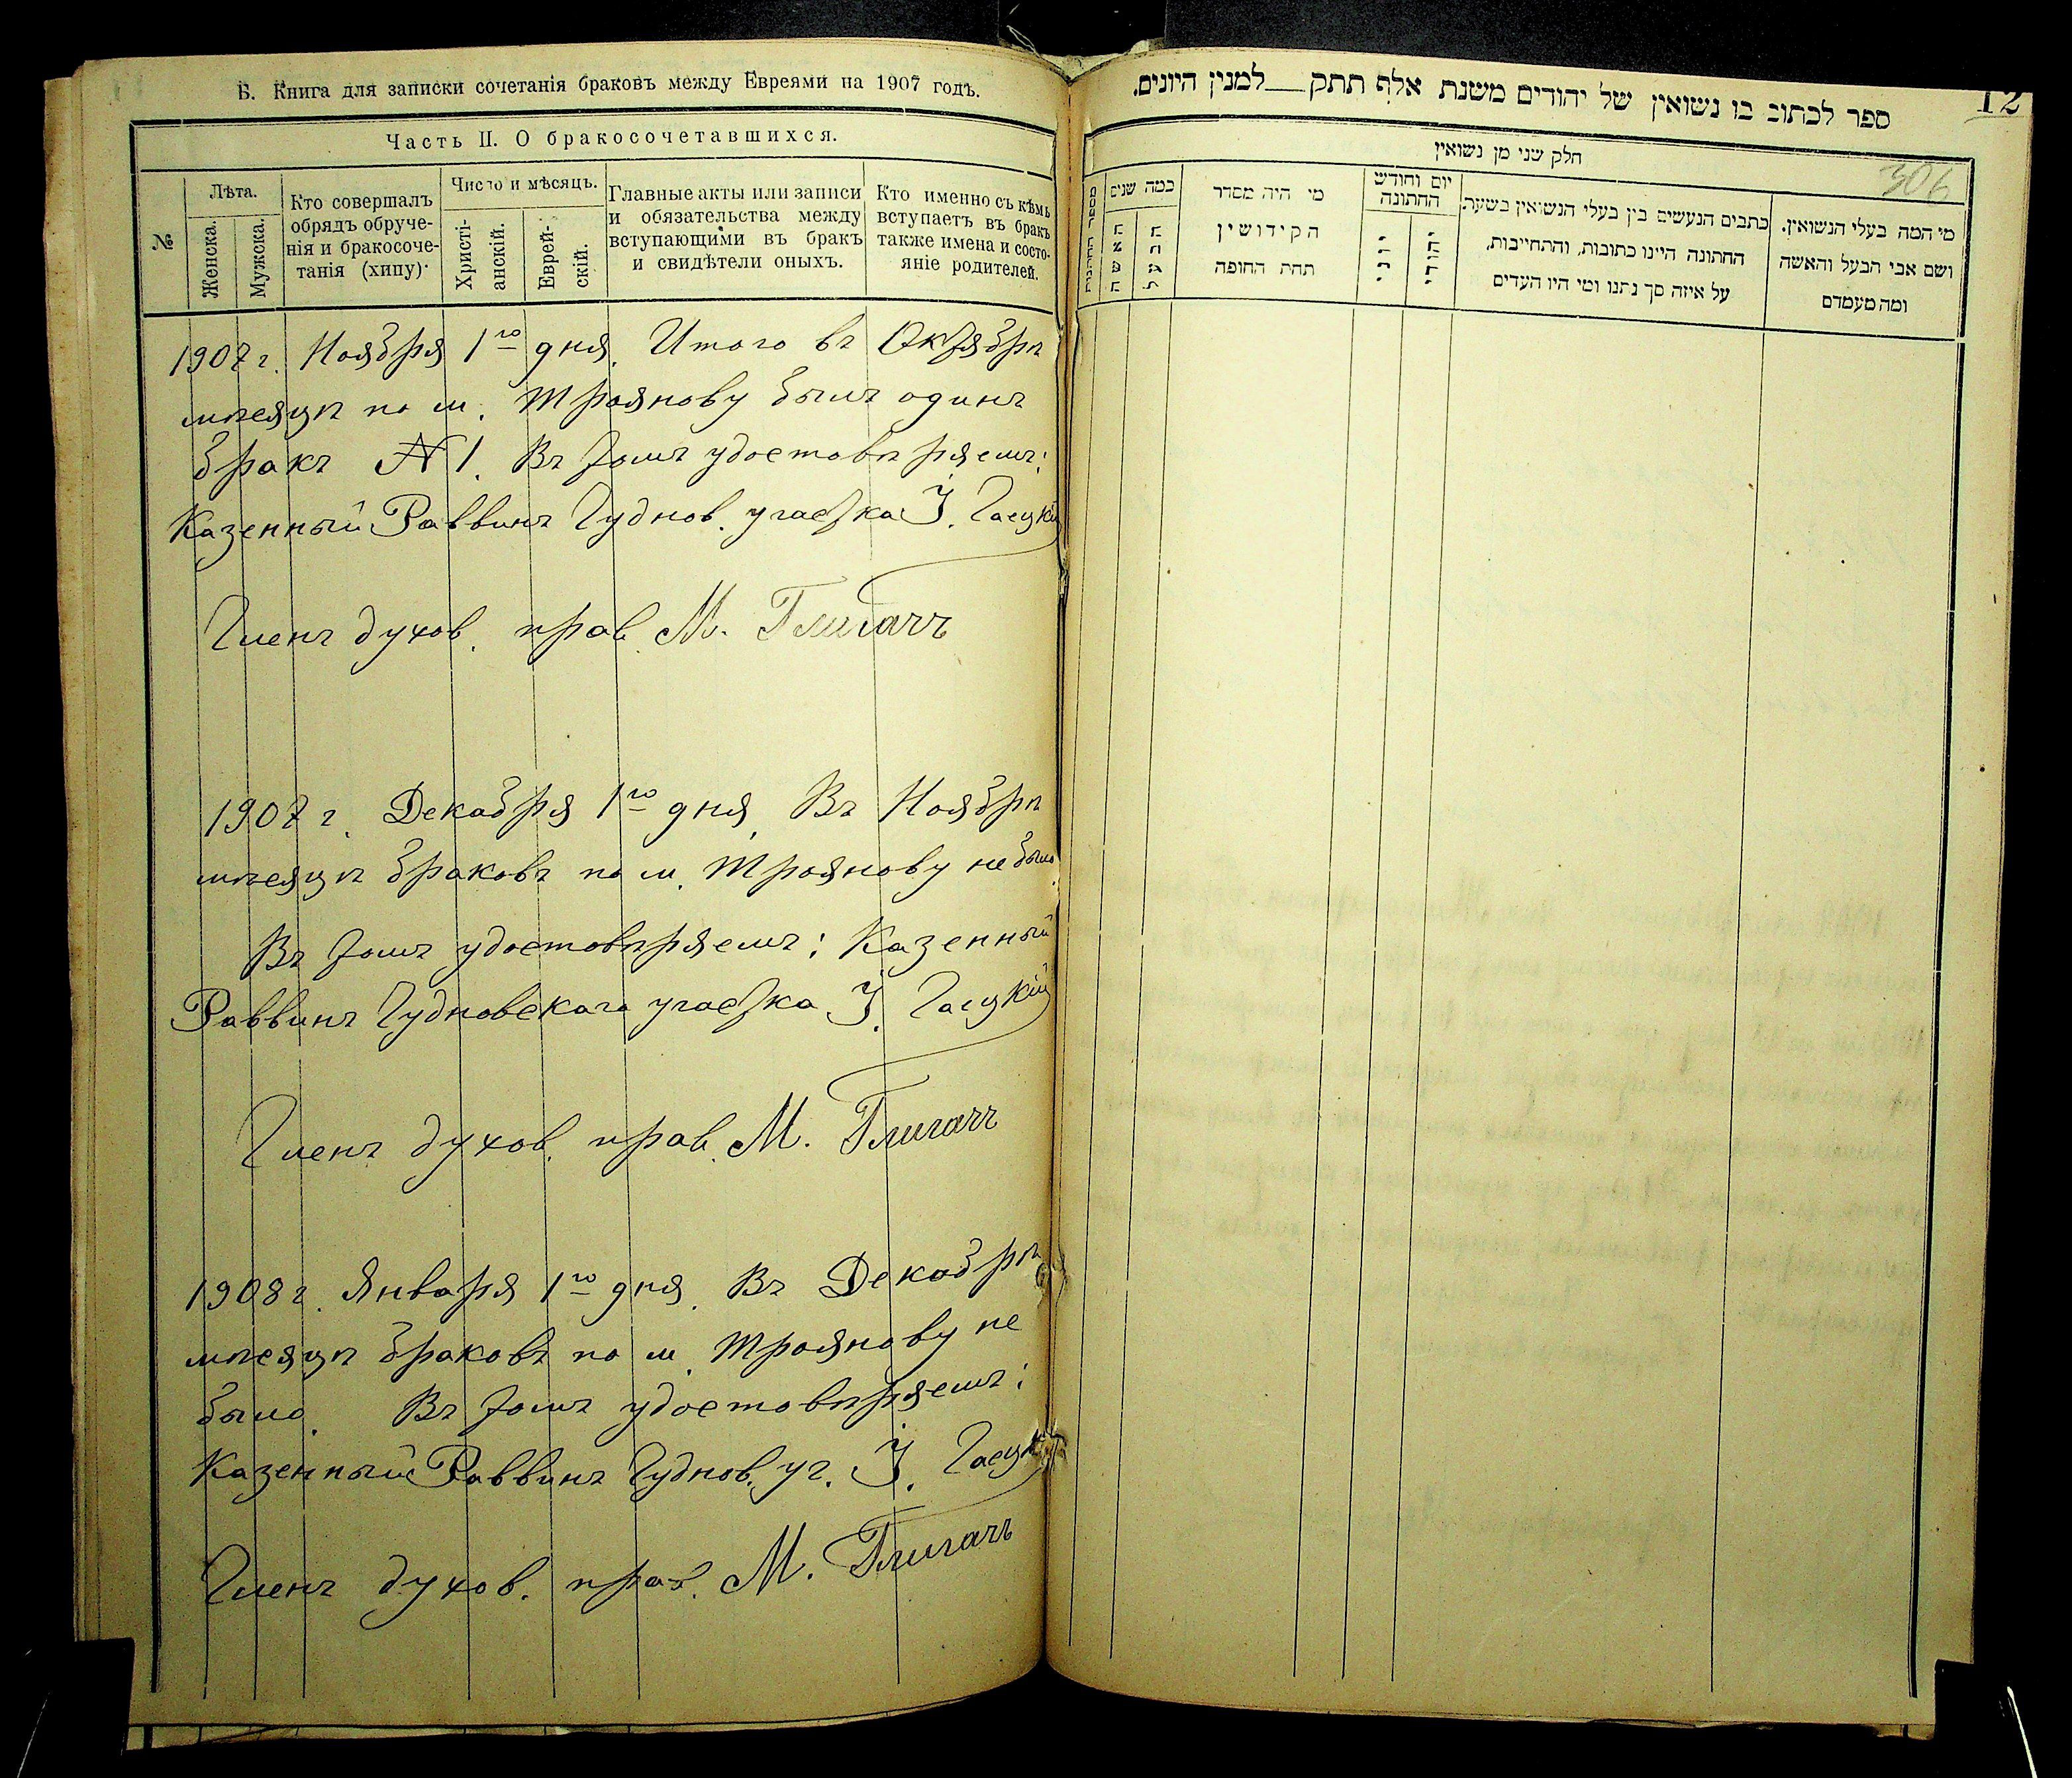 Б. Книга для записки сочетанія браковъ между Евреями на 1907 годъ.
Часть II. О бракосочетавшихся.
№
Лѣта.
Женска.
Мужска.
Кто совершалъ
обрядъ обруче-
нія и бракосоче-
танія (хипу)·
Число и мѣсяцъ.
Христі-
анскій.
Еврей-
скій.
Главные акты или записи
и обязательства между
вступающими въ бракъ
и свидѣтели оныхъ.
Кто именно съ кѣмъ
вступаетъ въ бракъ
также имена и состо-
яніе родителей.
1907 г. Ноября 1го дня. Итого въ Октябрѣ
мѣсяцѣ по м. Троянову былъ одинъ
бракъ № 1. Въ томъ удостовѣряемъ:
Казенный Раввинъ Чуднов. участка І.
Членъ духов. прав. М. Гличачъ
1907 г. Декабря 1го дня. Въ Ноябрѣ
мѣсяцѣ браковъ по м. Троянову не было.
Въ томъ удостовѣряемъ: Казенный
Раввинъ Чудновскаго участка І.
Членъ духов. прав. М. Гличачъ
1908 г. Января 1го дня. Въ Декабрѣ
мѣсяцѣ браковъ по м. Троянову не
было. Въ томъ удостовѣряемъ:
Казенный Раввинъ Чуднов. уч. І.
Членъ духов. прав. М. Гличачъ
ספר לכתוב בו נשואין של יהודים משנת אלף תתק__למנין היונים.
12
306
חלק שני מן נשואין
מספר החתונות
כמה שנים
האשה
הבעל
מי היה מסדר
הקידושין
תחת החופה
יום וחודש
החתונה
יוני
יהודי
כתבים הנעשים בין בעלי הנשואין בשעת
החתונה היינו כתובות, והתחייבות,
על איזה סך נתנו ומי היו העדים
מי המה בעלי הנשואין.
ושם אבי הבעל והאשה
ומה מעמדם